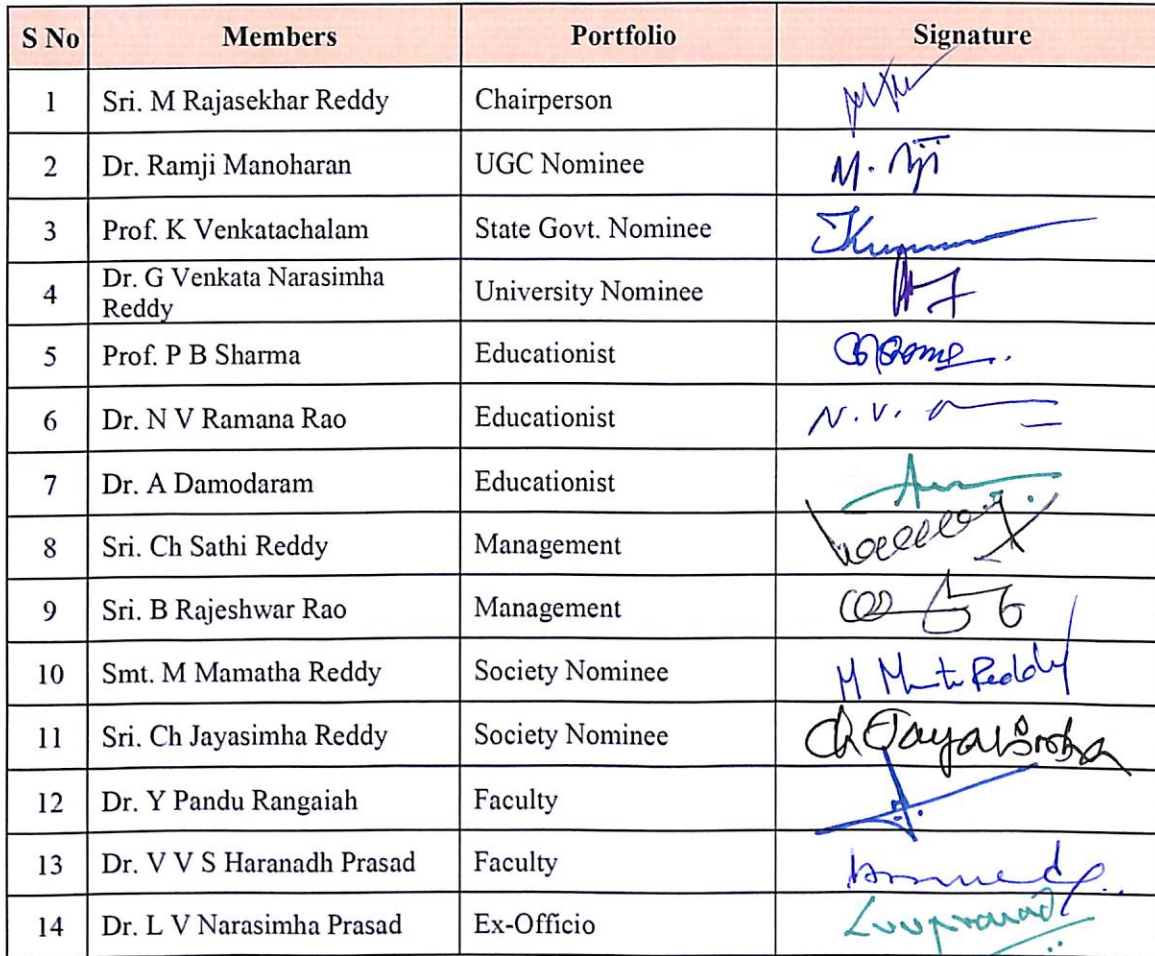 S No Members Portfolio Signature
1 Sri. M Rajasekhar Reddy Chairperson
2 Dr. Ramji Manoharan UGC Nominee
3 Prof. K Venkatachalam State Govt. Nominee
4 Dr. G Venkata Narasimha
Reddy University Nominee
5 Prof. P B Sharma Educationist
6 Dr. N V Ramana Rao Educationist N. V.
7 Dr. A Damodaram Educationist
8 Sri. Ch Sathi Reddy Management
9 Sri. B Rajeshwar Rao Management
10 Smt. M Mamatha Reddy Society Nominee M Reddy
11 Sri. Ch Jayasimha Reddy Society Nominee Ch Jayasimha
12 Dr. Y Pandu Rangaiah Faculty
13 Dr. V V S Haranadh Prasad Faculty
14 Dr. L V Narasimha Prasad Ex-Officio